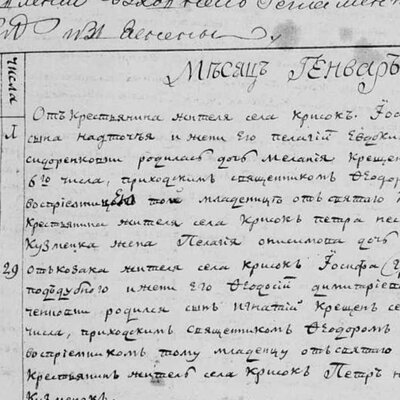 внесены
числа
Мѣсяцъ Генваръ
Л
Отъ крестьянина жителя села Крисокъ Ѳос
сына надточъя и жени Его Пелагіи Евдоким
сидоренковни родилась дочь Меланія Крещен
6го числа, приходскимъ священникомъ Ѳеодор
воспріемницею той младеницѣ отъ святаго
Крестьянина жителя села Крисокъ Петра
Кузменка жена Пелагія онисимова дочь
29
Отъ козака жителя села Крисокъ Іосифа
поддубного и жени Его Ѳеодосіи димитріев
ченковни родился сынъ Игнатій Крещен
числа, приходскимъ священникомъ Ѳеодоромъ
воспріемникомъ тому младенцу отъ святаго
Крестьянинъ житель села Крисокъ Петръ
Кузменокъ.